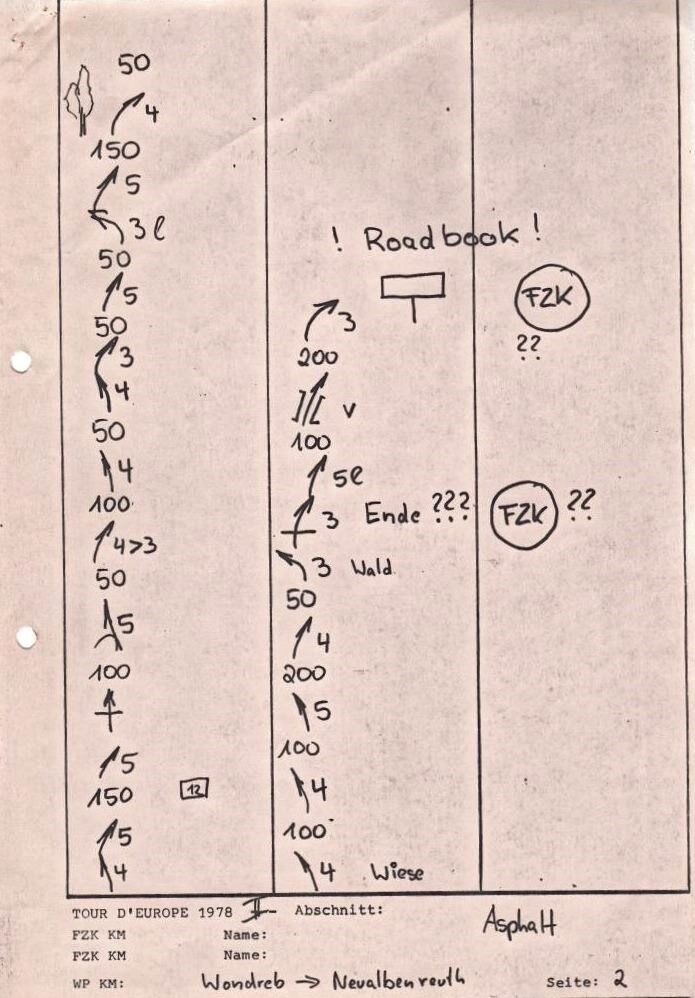 50
4
150
5
3 l
50
5
50
3
4
50
4
100
4>3
50
5
100
5
150 12
5
4
! Roadbook !
FZK
??
3
200
v
100
5l
3 Ende ??? FZK ??
3 Wald
50
4
200
5
100
4
100
4 Wiese
TOUR D'EUROPE 1978 II Abschnitt: Asphalt
FZK KM Name:
FZK KM Name:
WP KM: Wondreb → Neualbenreuth Seite: 2